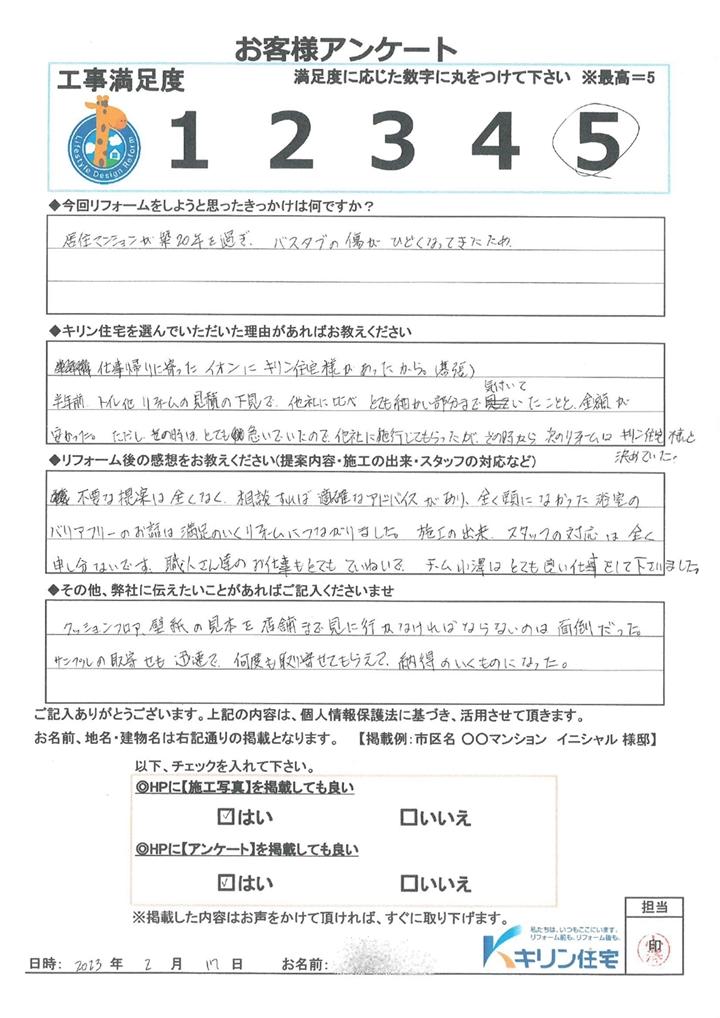 お客様アンケート
工事満足度 満足度に応じた数字に丸をつけて下さい ※最高＝5
Lifestyle Design Reform
1 2 3 4 5
◆今回リフォームをしようと思ったきっかけは何ですか？
居住マンションが築20年を過ぎ、バスタブの傷がひどくなってきたため
◆キリン住宅を選んでいただいた理由があればお教えください
仕事帰りに寄ったイオンにキリン住宅様があったから。
半年前、トイレ他リフォームの見積の下見で、他社に比べとても細かい部分まで気付いていたことと、金額が
安かった。ただし、その時は、とても急いでいたので、他社に施行してもらったが、その時から次のリフォームはキリン住宅様と
決めていた。
◆リフォーム後の感想をお教えください(提案内容・施工の出来・スタッフの対応など)
不要な提案は全くなく、相談すれば適確なアドバイスがあり、全く頭になかった浴室の
バリアフリーのお話は満足のいくリフォームにつながりました。施工の出来、スタッフの対応は全く
申し分ないです。職人さん達のお仕事もとてもていねいで、チーム小澤はとても良い仕事をして下さいました。
◆その他、弊社に伝えたいことがあればご記入くださいませ
クッションフロア、壁紙の見本を店舗まで見に行かなければならないのは面倒だった。
サンプルの取寄せも迅速で、何度も取り寄せてもらえて、納得のいくものになった。
ご記入ありがとうございます。上記の内容は、個人情報保護法に基づき、活用させて頂きます。
お名前、地名・建物名は右記通りの掲載となります。 【掲載例：市区名 〇〇マンション イニシャル 様邸】
以下、チェックを入れて下さい。
◎HPに【施工写真】を掲載しても良い
☑はい □いいえ
◎HPに【アンケート】を掲載しても良い
☑はい □いいえ
※掲載した内容はお声をかけて頂ければ、すぐに取り下げます。
担当
私たちは、いつもここにいます。
リフォーム前も、リフォーム後も。
キリン住宅
印
日時： 2023 年 2 月 17 日 お名前：